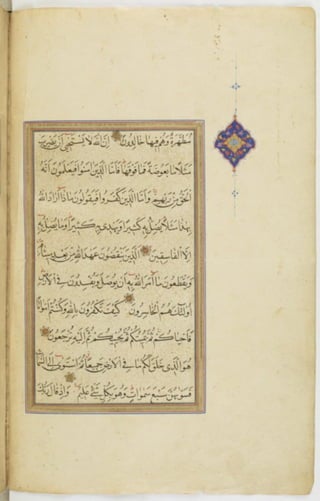 مُطَهَّرَةٌ وَهُمْ فِيهَا خَالِدُونَ إِنَّ اللَّهَ لَا يَسْتَحْيِي أَنْ يَضْرِبَ
مَثَلًا مَا بَعُوضَةً فَمَا فَوْقَهَا فَأَمَّا الَّذِينَ آمَنُوا فَيَعْلَمُونَ أَنَّهُ
الْحَقُّ مِنْ رَبِّهِمْ وَأَمَّا الَّذِينَ كَفَرُوا فَيَقُولُونَ مَاذَا أَرَادَ اللَّهُ
بِهَذَا مَثَلًا يُضِلُّ بِهِ كَثِيرًا وَيَهْدِي بِهِ كَثِيرًا وَمَا يُضِلُّ بِهِ
إِلَّا الْفَاسِقِينَ الَّذِينَ يَنْقُضُونَ عَهْدَ اللَّهِ مِنْ بَعْدِ مِيثَاقِهِ
وَيَقْطَعُونَ مَا أَمَرَ اللَّهُ بِهِ أَنْ يُوصَلَ وَيُفْسِدُونَ فِي الْأَرْضِ
أُولَئِكَ هُمُ الْخَاسِرُونَ كَيْفَ تَكْفُرُونَ بِاللَّهِ وَكُنْتُمْ أَمْوَاتًا
فَأَحْيَاكُمْ ثُمَّ يُمِيتُكُمْ ثُمَّ يُحْيِيكُمْ ثُمَّ إِلَيْهِ تُرْجَعُونَ
هُوَ الَّذِي خَلَقَ لَكُمْ مَا فِي الْأَرْضِ جَمِيعًا ثُمَّ اسْتَوَى إِلَى السَّمَاءِ
فَسَوَّاهُنَّ سَبْعَ سَمَوَاتٍ وَهُوَ بِكُلِّ شَيْءٍ عَلِيمٌ وَإِذْ قَالَ رَبُّكَ